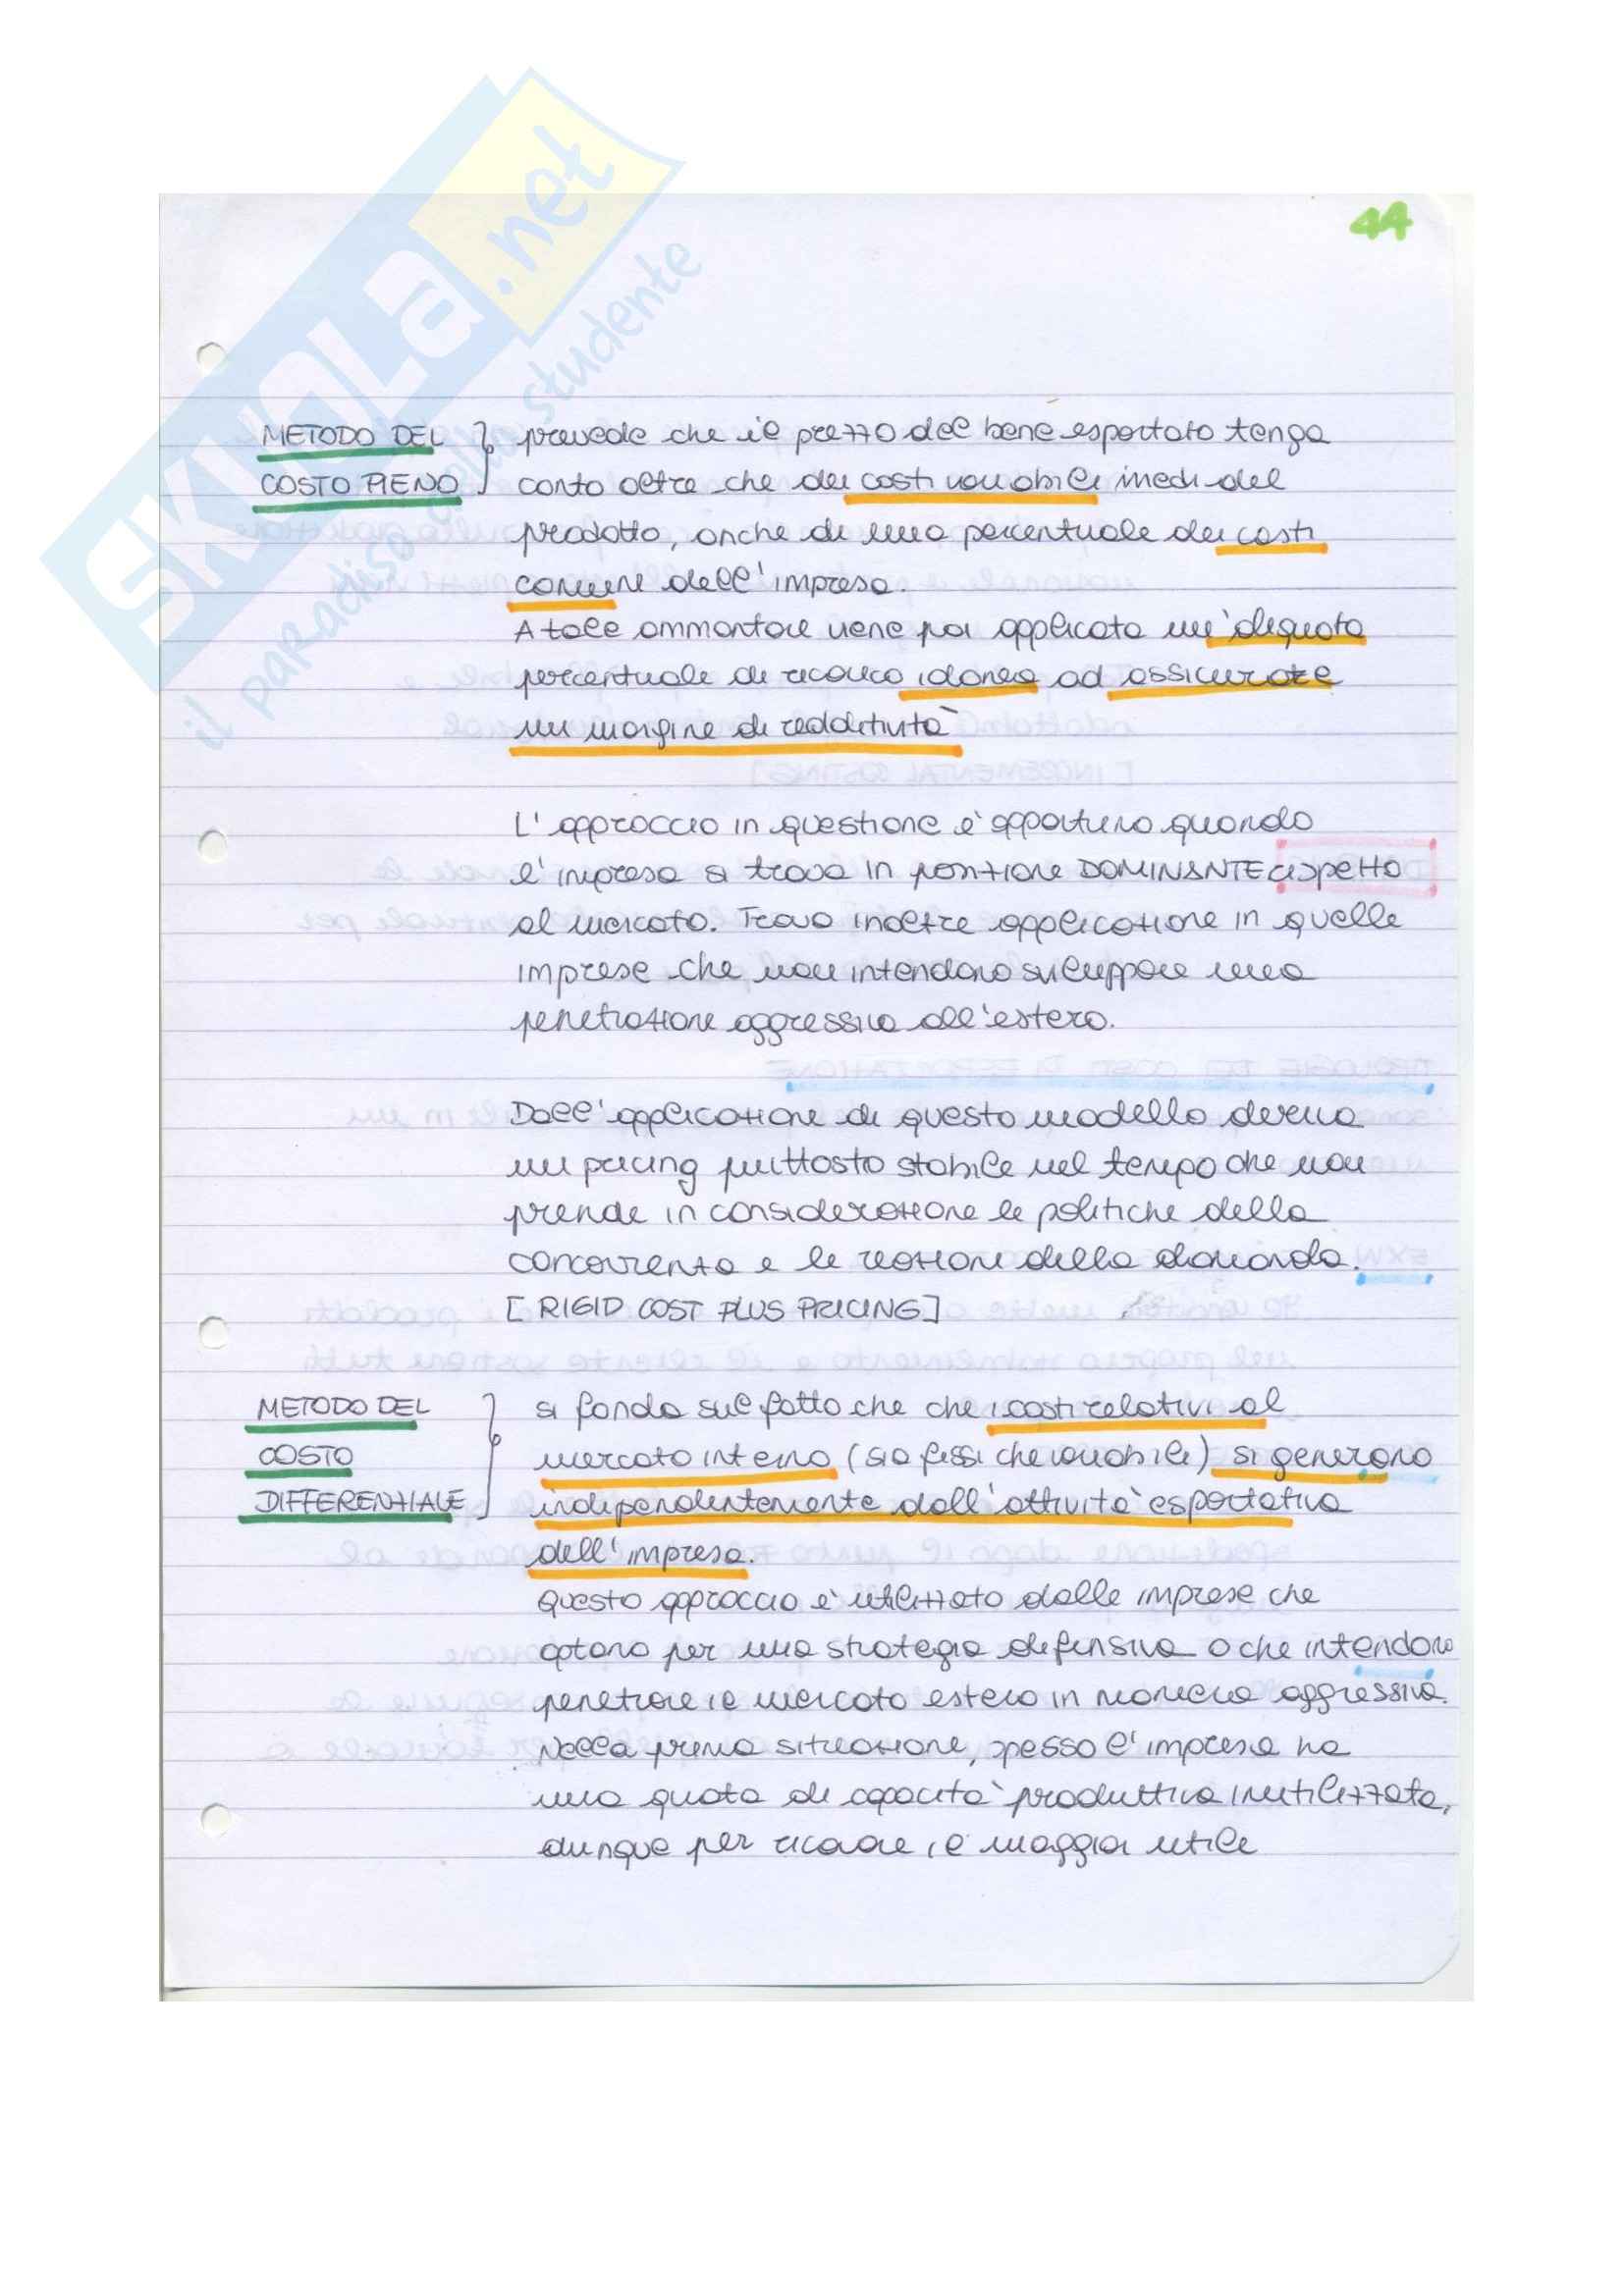 SKUOLA.net
il paradiso dello studente
44
METODO DEL COSTO PIENO
prevede che il prezzo del bene esportato tenga
conto oltre che dei costi variabili medi del
prodotto, anche di una percentuale dei costi
comuni dell'impresa.
A tale ammontare viene poi applicata un'aliquota
percentuale di ricarico idonea ad assicurare
un margine di redditività
L'approccio in questione è opportuno quando
l'impresa si trova in posizione DOMINANTE rispetto
al mercato. Trova inoltre applicazione in quelle
imprese che non intendono sviluppare una
penetrazione aggressiva all'estero.
Dall'applicazione di questo modello deriva
un pricing piuttosto stabile nel tempo che non
prende in considerazione le politiche della
concorrenza e le reazioni della domanda.
[RIGID COST PLUS PRICING]
METODO DEL
COSTO
DIFFERENZIALE
si fonda sul fatto che che i costi relativi al
mercato interno (sia fissi che variabili) si generano
indipendentemente dall'attività esportativa
dell'impresa.
Questo approccio è utilizzato dalle imprese che
optano per una strategia difensiva o che intendono
penetrare il mercato estero in maniera aggressiva.
Nella prima situazione, spesso l'impresa ha
una quota di capacità produttiva inutilizzata,
dunque per ricavare il maggior utile